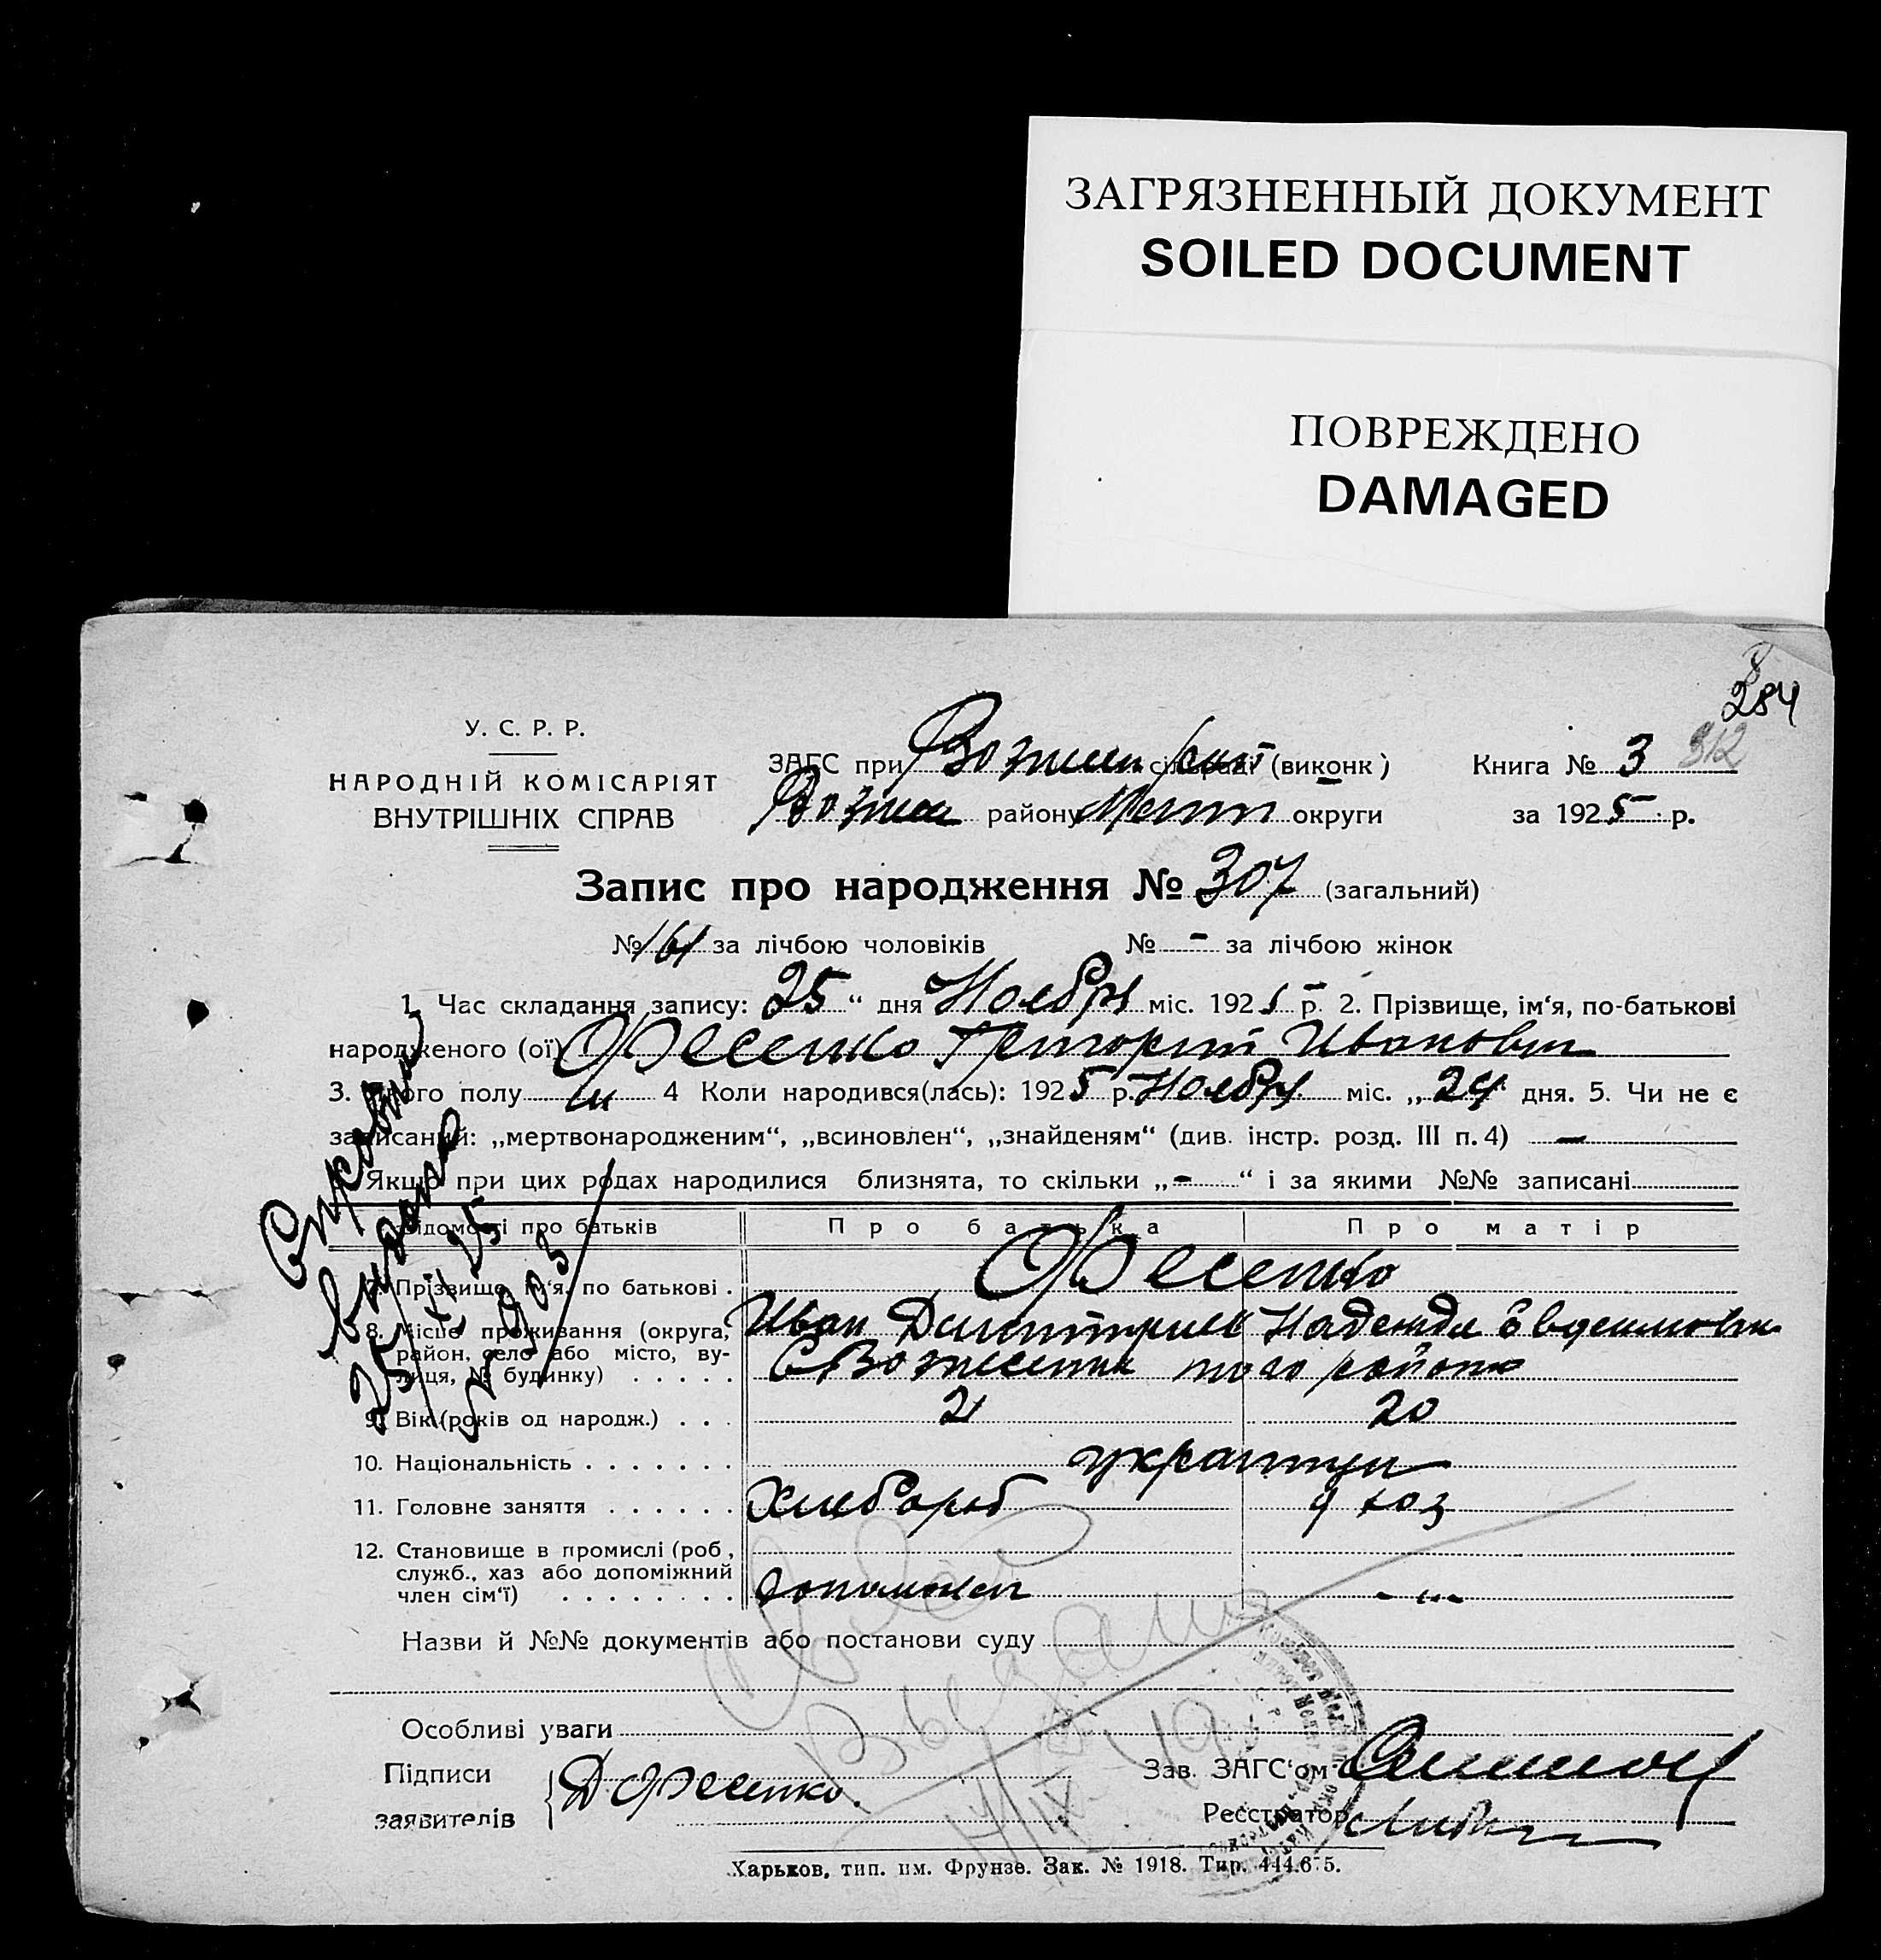 ЗАГРЯЗНЕННЫЙ ДОКУМЕНТ
SOILED DOCUMENT
ПОВРЕЖДЕНО
DAMAGED
284
312
У. С. Р. Р.
НАРОДНІЙ КОМІСАРІЯТ
ВНУТРІШНІХ СПРАВ
ЗАГС при сільраді (виконк)
району округи
Книга № 3
за 1925 р.
Запис про народження № 307 (загальний)
№ 161 за лічбою чоловіків № - за лічбою жінок
1. Час складання запису: 25 “ дня Ноября міс. 1925 р. 2. Прізвище, ім‘я, по-батькові
народженого (ої) Фесенко Григорий Иванович
3. Якого полу м 4 Коли народився(лась): 1925 р. Ноября міс. „ 24 дня. 5. Чи не є
записаний: „мертвонародженим“, „всиновлен“, „знайденям“ (див. інстр. розд. III п. 4) —
Якщо при цих родах народилися близнята, то скільки „ - “ і за якими №№ записані
Відомості про батьків Про батька Про матір
7. Прізвище, ім‘я, по батькові . Фесенко
Иван Дмитриев Надежда Евдокимовн
8. Місце проживання (округа,
район, село або місто, ву-
лиця, № будинку) . . . . .
того района
9. Вік (років од народж.) . . . 21 20
10. Національність . . . . . . . украинцы
11. Головне заняття . . . . . . Хлебороб д хоз
12. Становище в промислі (роб,
служб., хаз або допоміжний
член сім‘ї) . . . . . . . . допоможн - „ -
Справка
видана
25/XI 25
№ 903
Назви й №№ документів або постанови суду
Выдано
Особливі уваги
Підписи
заявителів
Д Фесенко.
Зав. ЗАГС‘ом
Реєстратор
Харьков, тип. им. Фрунзе. Зак. № 1918. Тир. 444.675.